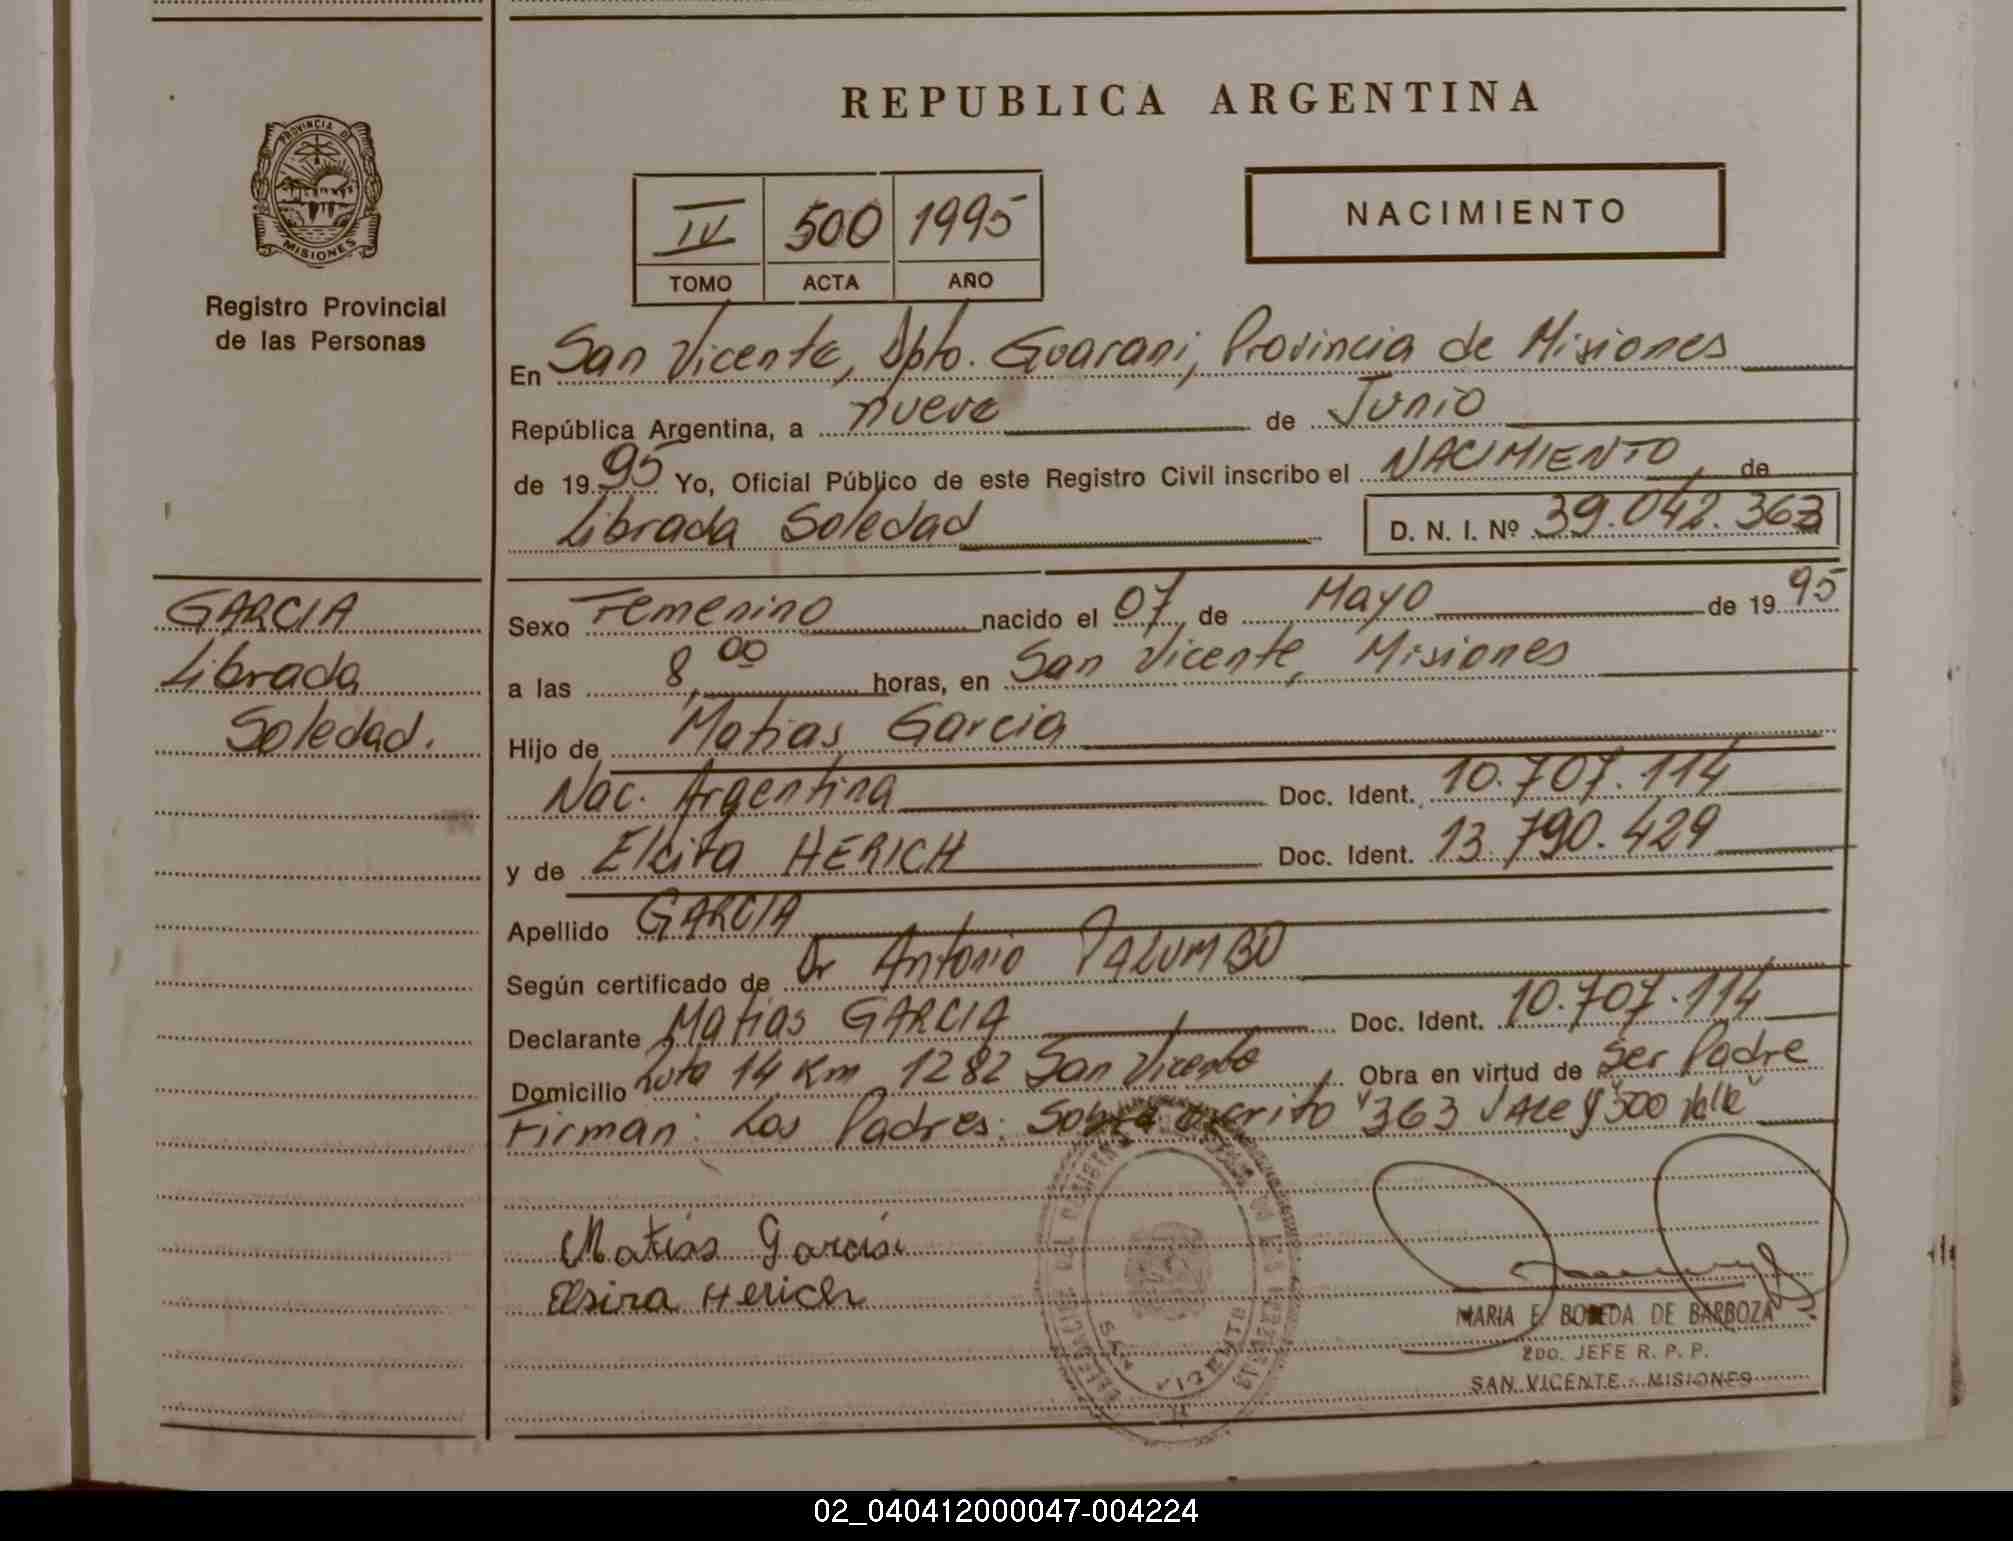 REPUBLICA ARGENTINA
PROVINCIA DE
MISIONES
Registro Provincial
de las Personas
IV 500 1995
TOMO ACTA AÑO
NACIMIENTO
En San Vicente, Dpto. Guarani, Provincia de Misiones
República Argentina, a nueve de Junio
de 1995 Yo, Oficial Público de este Registro Civil inscribo el NACIMIENTO, de
Librada Soledad D. N. I. Nº 39.042.363
GARCIA
Librada
Soledad.
Sexo Femenino nacido el 07 de Mayo de 1995
a las 8,00 horas, en San Vicente, Misiones
Hijo de Matias Garcia
Nac. Argentina Doc. Ident. 10.707.114
y de Elcira HERICH Doc. Ident. 13.790.429
Apellido GARCIA
Según certificado de Dr Antonio PALUMBO
Declarante Matias GARCIA Doc. Ident. 10.707.114
Domicilio Ruta 14 Km 1282 San Vicente Obra en virtud de Ser Padre
Firman: Los Padres: Sobre escrito "363 VALE y "500 Valle"
Matias Garcia
Elsira Herich
SAN VICENTE
MARIA E. DE BARBOZA
2DO. JEFE R. P. P.
SAN VICENTE - MISIONES
02_040412000047-004224